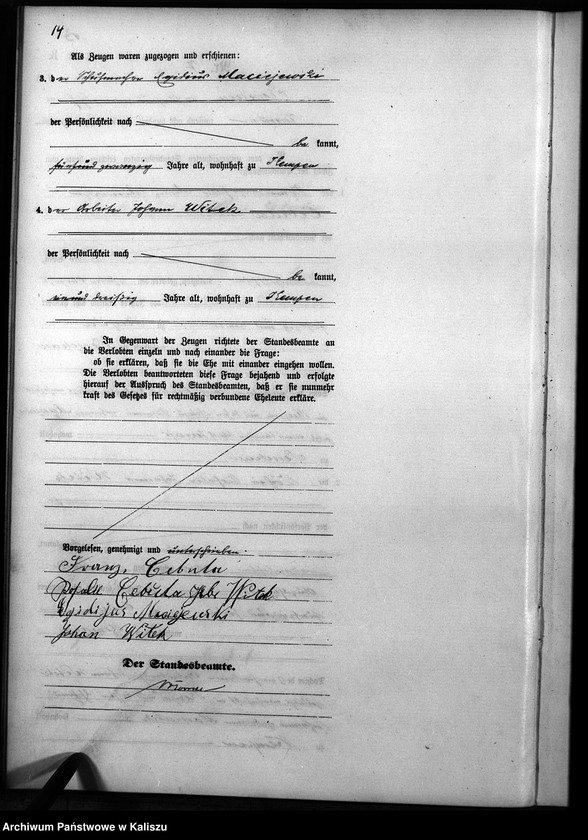 14
Als Zeugen waren zugezogen und erschienen:
3. der Schuhmacher Egidius Maciejewski
der Persönlichkeit nach
be kannt,
fünfund zwanzig Jahre alt, wohnhaft zu Kempen
4. der Arbeiter Johann Witek
der Persönlichkeit nach
be kannt,
einund dreißig Jahre alt, wohnhaft zu Kempen
In Gegenwart der Zeugen richtete der Standesbeamte an
die Verlobten einzeln und nach einander die Frage:
ob sie erklären, daß sie die Ehe mit einander eingehen wollen.
Die Verlobten beantworteten diese Frage bejahend und erfolgte
hierauf der Ausspruch des Standesbeamten, daß er sie nunmehr
kraft des Gesetzes für rechtmäßig verbundene Eheleute erkläre.
Vorgelesen, genehmigt und unterschrieben.
Franz Cebula
Cebula geb. Witek
Egidijus Maciejewski
Johan Witek
Der Standesbeamte.
Archiwum Państwowe w Kaliszu